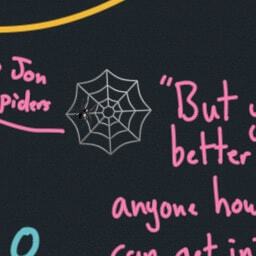 Jon
piders
"But
better
anyone how
can get in